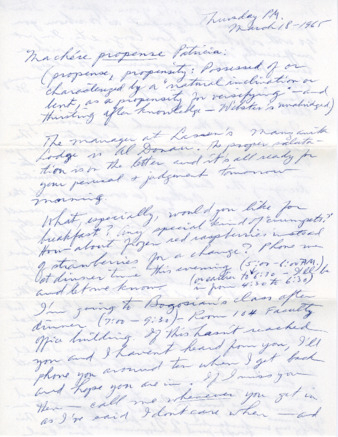 Thursday P.M.
March 18 - 1965
Machére propense Patricia:
(propense, propensity: Possessed of or
characterized by a "natural inclination or
bent, as a propensity for versifying" - and
thirsting after knowledge - Webster's unabridged)
The manager at Lesson's
Lodge is Al Donau. The proper saluta-
tion is on the letter and it's all ready for
your perusal & judgment tomorrow
morning.
What, especially, would you like for
breakfast? Any special kind of
How about frozen red raspberries instead
of strawberries for a change? Phone me
at dinner time this evening (5:00-6:00 P.M.)
and let me know (or earlier - I'll be
in from 4:30 to 6:30)
I'm going to Bogosian's class after
dinner (7:00 - 9:30) - Room 104 Faculty
office building. If this hasn't reached
you and I haven't heard from you, I'll
phone you around ten when I get back
and hope you are in. If I miss you
then - call me whenever you get in
as I've said I don't care when - and